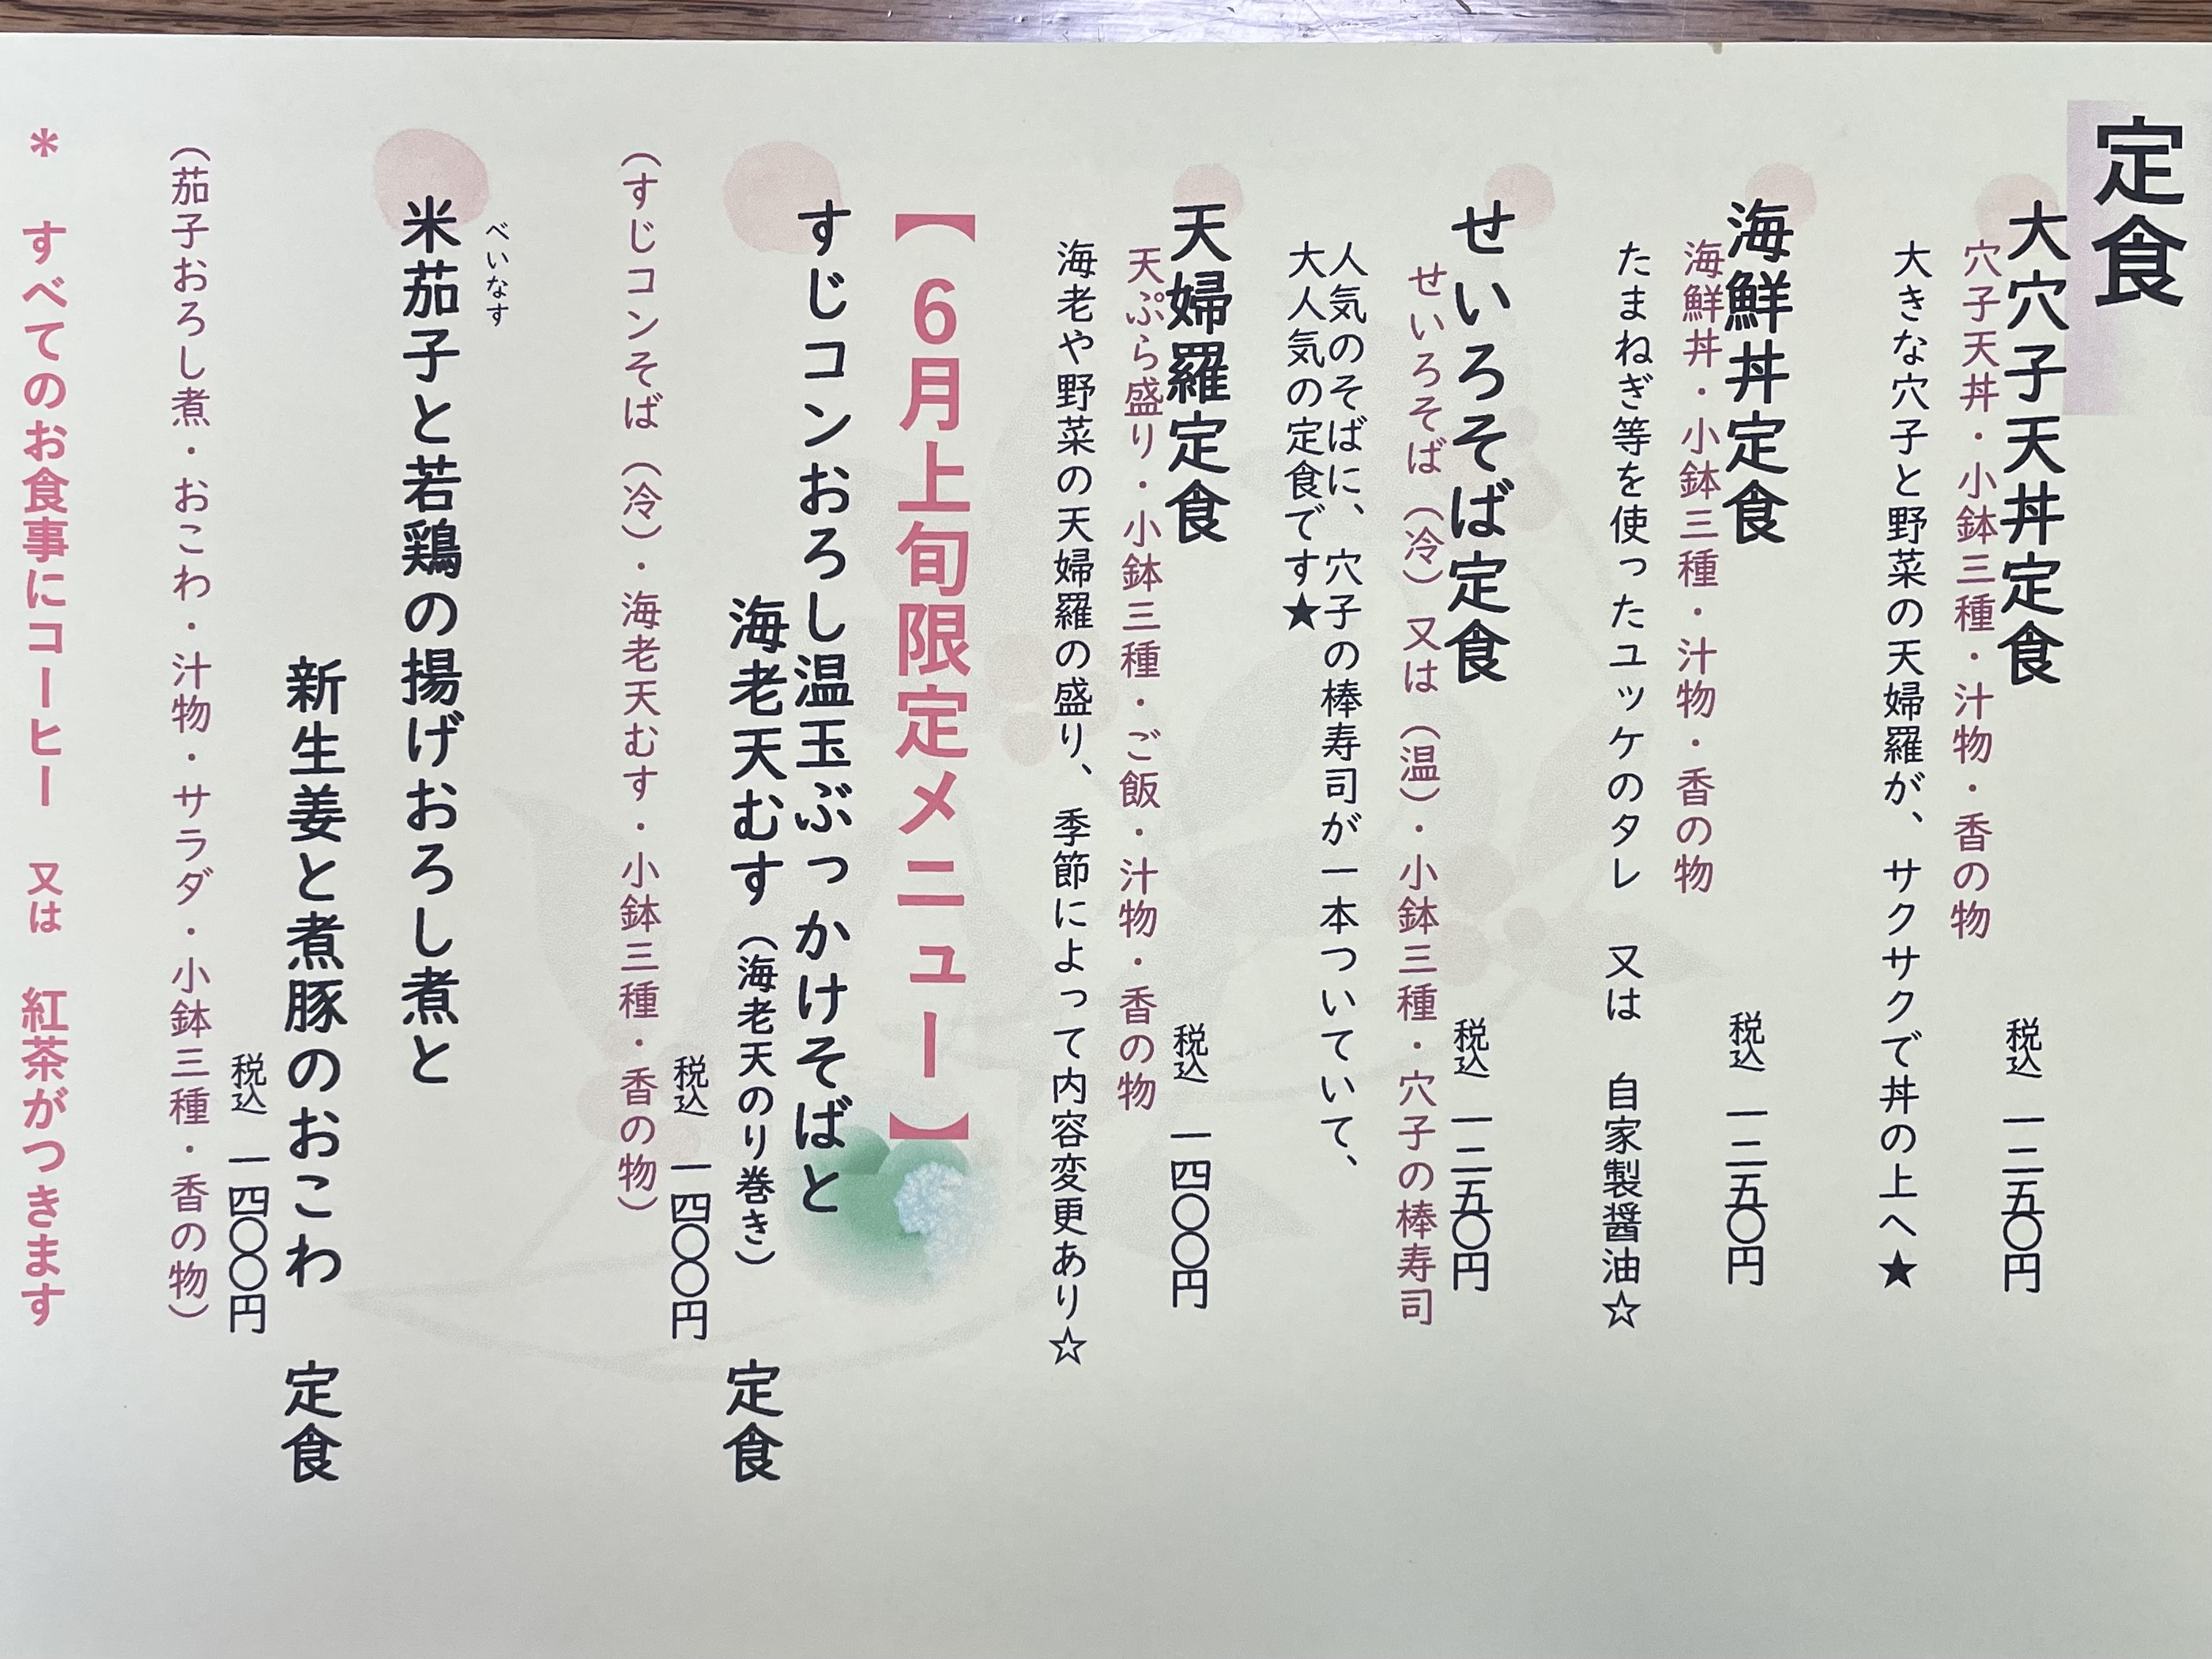 定食
大穴子天丼定食　税込　一二五〇円
穴子天丼・小鉢三種・汁物・香の物
大きな穴子と野菜の天婦羅が、サクサクで丼の上へ★
海鮮丼定食　税込　一二五〇円
海鮮丼・小鉢三種・汁物・香の物
たまねぎ等を使ったユッケのタレ　又は　自家製醤油☆
せいろそば定食　税込　一二五〇円
せいろそば（冷）又は（温）・小鉢三種・穴子の棒寿司
人気のそばに、穴子の棒寿司が一本ついていて、
大人気の定食です★
天婦羅定食　税込　一四〇〇円
天ぷら盛り・小鉢三種・ご飯・汁物・香の物
海老や野菜の天婦羅の盛り、季節によって内容変更あり☆
【6月上旬限定メニュー】
すじコンおろし温玉ぶっかけそばと
海老天むす（海老天のり巻き）　定食
税込　一四〇〇円
（すじコンそば（冷）・海老天むす・小鉢三種・香の物）
べいなす
米茄子と若鶏の揚げおろし煮と
新生姜と煮豚のおこわ　定食
税込　一四〇〇円
（茄子おろし煮・おこわ・汁物・サラダ・小鉢三種・香の物）
＊　すべてのお食事にコーヒー　又は　紅茶がつきます